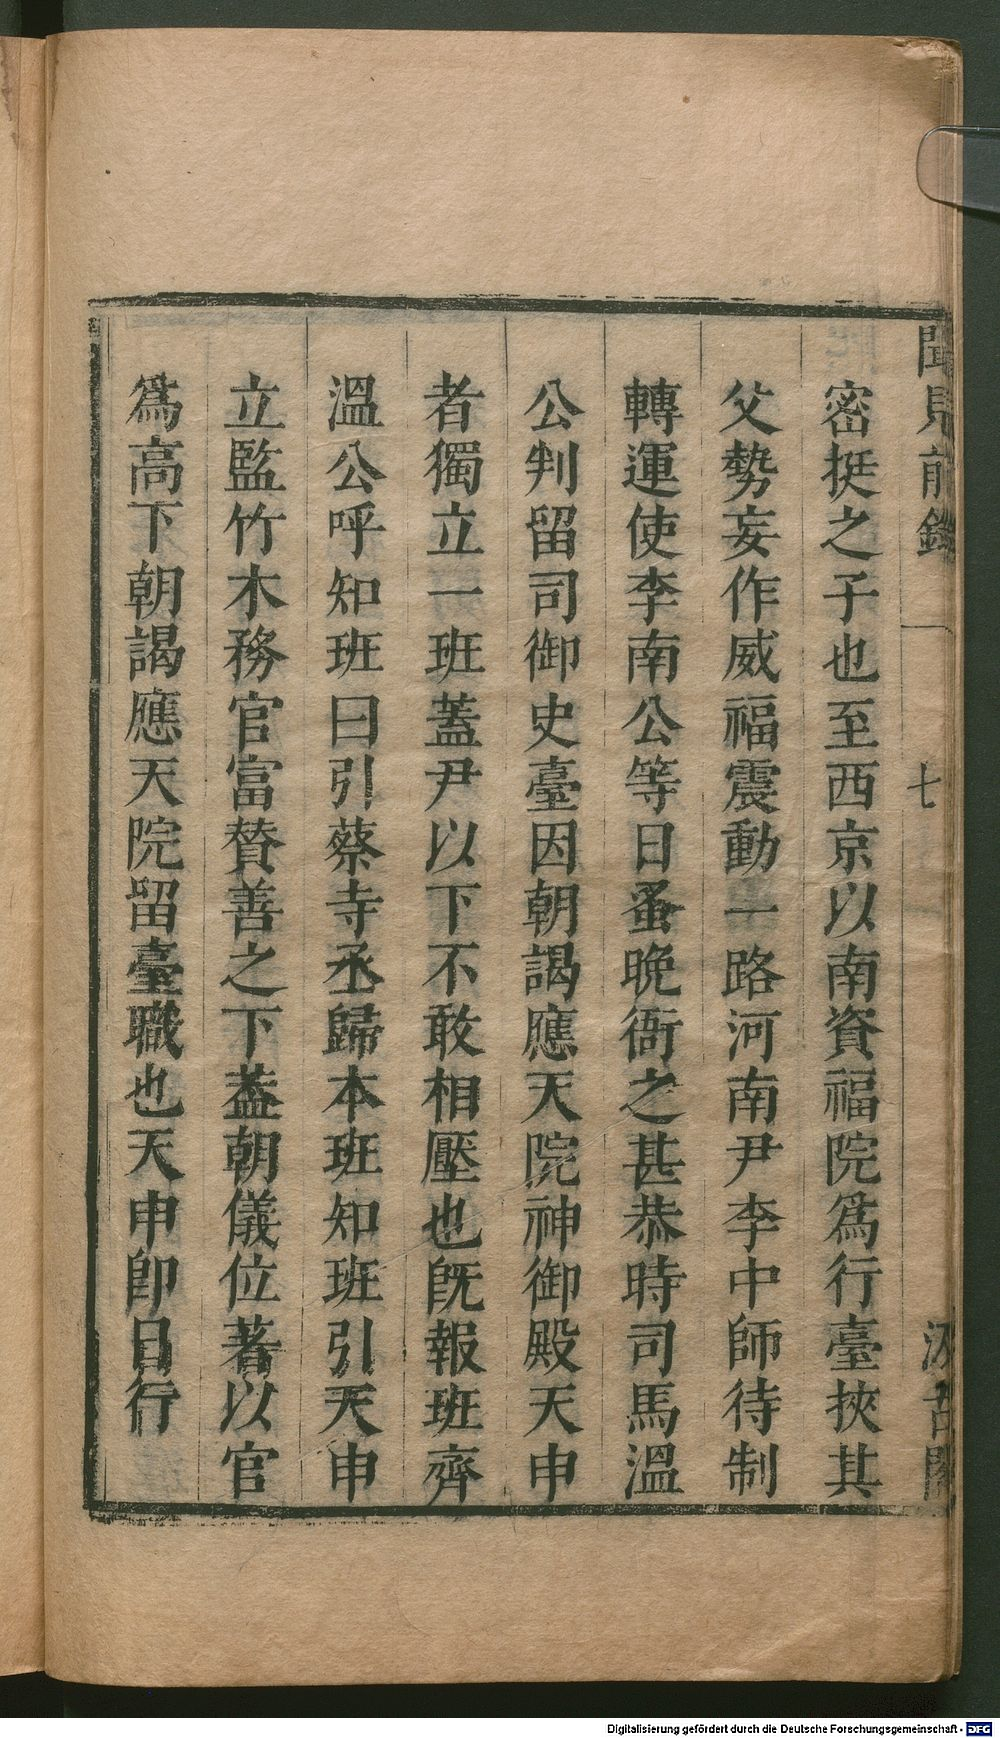 聞見前錄
七
汲古閣
密挺之子也至西京以南資福院爲行臺挾其
父勢妄作威福震動一路河南尹李中師待制
轉運使李南公等日蚤晚衙之甚恭時司馬溫
公判留司御史臺因朝謁應天院神御殿天申
者獨立一班蓋尹以下不敢相壓也旣報班齊
溫公呼知班曰引蔡寺丞歸本班知班引天申
立監竹木務官富贊善之下葢朝儀位著以官
爲高下朝謁應天院留臺職也天申卽日行
Digitalisierung gefördert durch die Deutsche Forschungsgemeinschaft - DFG